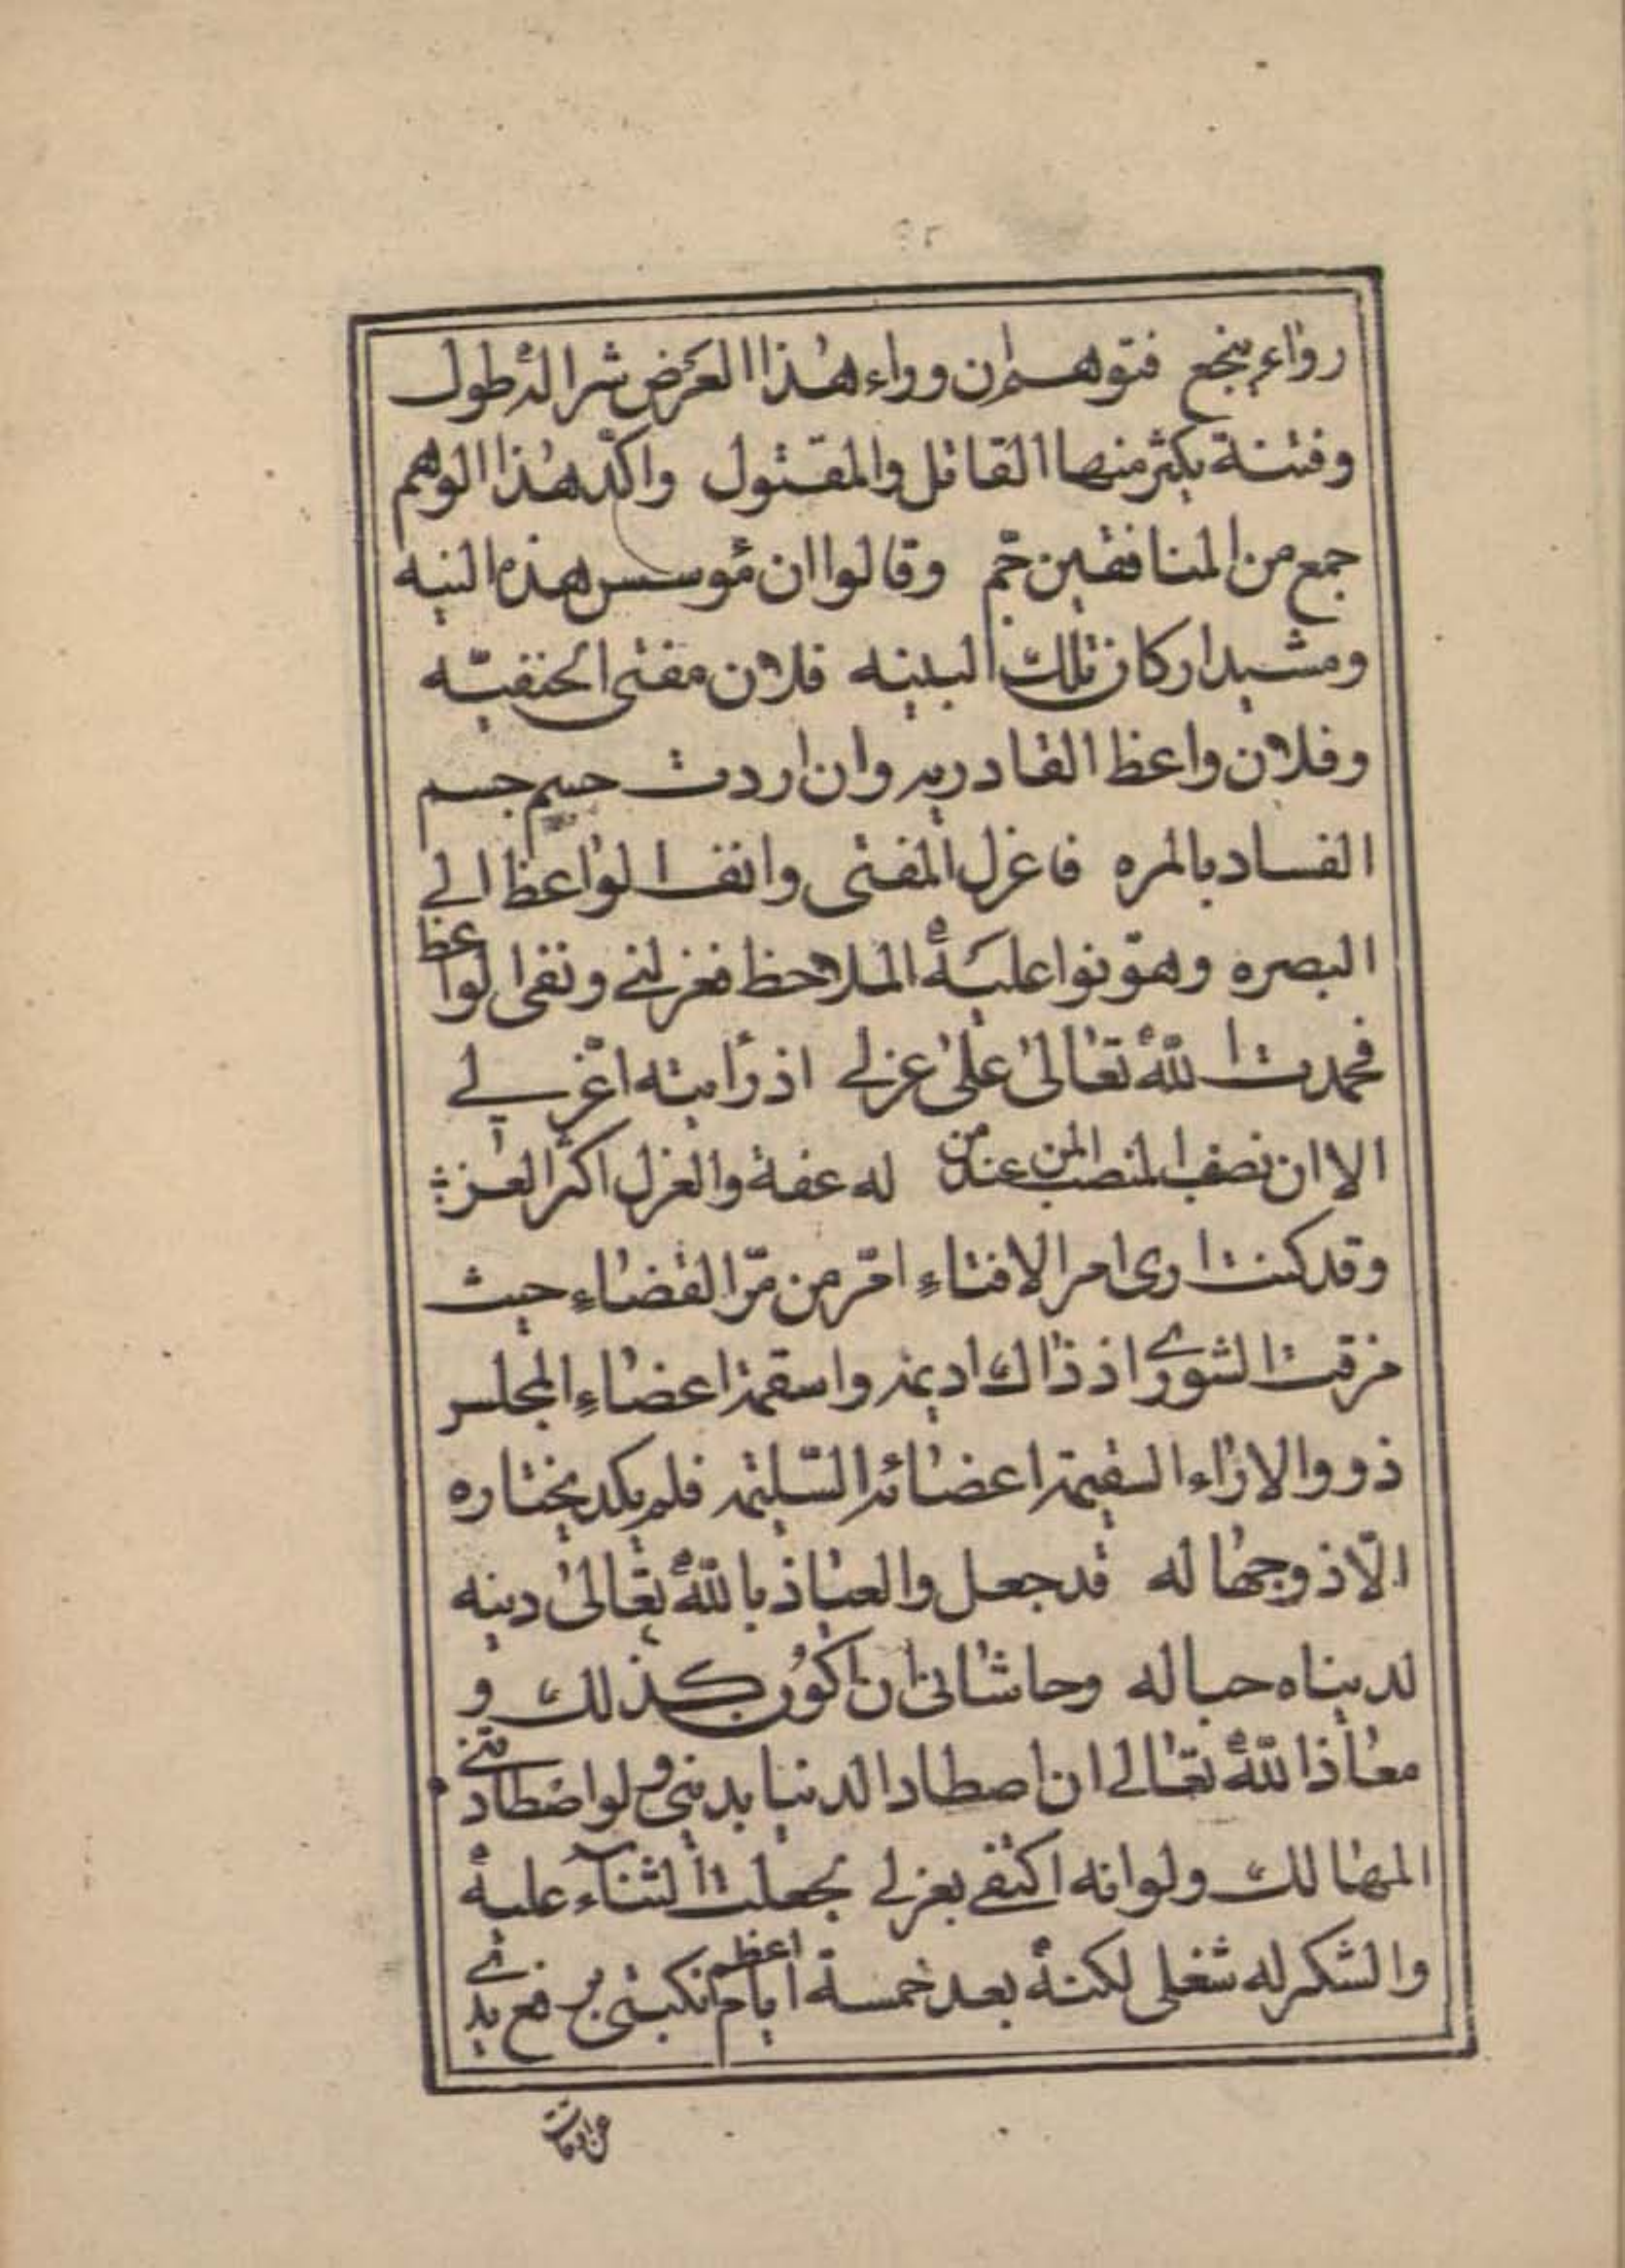 رواء ينجع فتوهم ان وراء هذا العرض شرا له طول
وفتنة يكثر منها القاتل والمقتول واكد هذا الوهم
جمع من المنافقين جم وقالوا ان مؤسس هذه النيه
ومشيد اركان تلك البنيه فلان مفتى الحنفيّه
وفلان واعظ القادريه وان اردت حسم جسم
الفساد بالمره فاعزل المفتى وانف الواعظ الى
البصره وهوّنوا عليه الملاحظ فعزلنى ونفى الواعظ
فحمدت اللّه تعالى على عزلى اذ رايته اعز لى
الا ان نصف المنصب عند من له عفة والعزل اكبر العز
وقد كنت ارى امر الافتاء امرّ من مرّ القضاء حيث
مزقت الشورى اذ ذاك اديمه واسقمت اعضاء المجلس
ذووا الاراء السقيمة اعضائه السّليمة فلم يكد يختاره
الّا ذو جهاله قد جعل والعياذ باللّه تعالى دينه
لدنياه حباله وحاشاى ان اكون كذلك و
معاذ اللّه تعالى ان اصطاد الدنيا بدينى ولو اصطادتنى
المهالك ولو انه اكتفى بعزلى لجعلت الثناء عليه
والشكر له شغلى لكنه بعد خمسة ايام اعظم نكبتى برفع يدى
عن اوقات